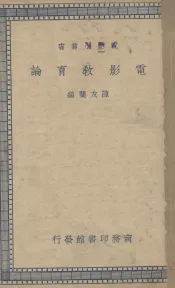 電影教育論
陳友蘭編
商務印書館發行